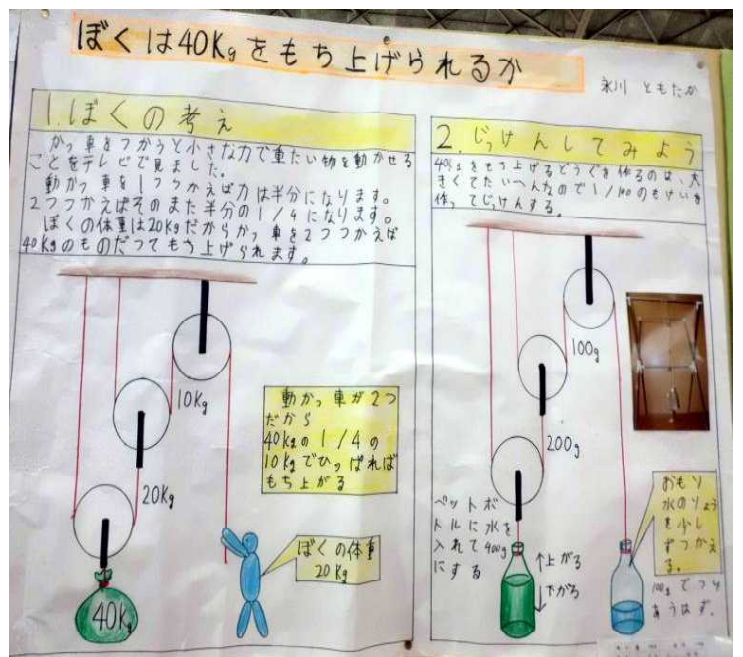 ぼくは40Kgをもち上げられるか
永川 ともたか
1.ぼくの考え
かっ車をつかうと小さな力で重たい物を動かせる
ことをテレビで見ました。
動かっ車を1つつかえば力は半分になります。
2つつかえばそのまた半分の1/4になります。
ぼくの体重は20Kgだからかっ車を2つつかえば
40Kgのものだってもち上げられます。
10Kg
20Kg
40Kg
動かっ車が2つ
だから
40Kgの1/4の
10Kgでひっぱれば
もち上がる
ぼくの体重
20Kg
2.じっけんしてみよう
40Kgをもち上げるどうぐを作るのは、大
きくてたいへんなので1/100のもけいを
作ってじっけんする。
100g
200g
ペットボ
トルに水を
入れて400g
にする
↑上がる
↓下がる
おもり
水のりょう
を少し
ずつかえ
る。
100gでつり
あうはず。